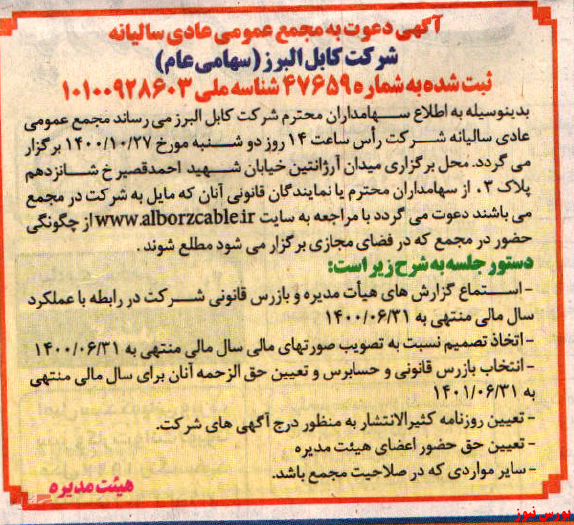 آگهی دعوت به مجمع عمومی عادی سالیانه
شرکت کابل البرز (سهامی عام)
ثبت شده به شماره ۴۷۶۵۹ شناسه ملی ۱۰۱۰۰۹۲۸۶۰۳
بدینوسیله به اطلاع سهامداران محترم شرکت کابل البرز می رساند مجمع عمومی
عادی سالیانه شرکت رأس ساعت ۱۴ روز دو شنبه مورخ ۱۴۰۰/۱۰/۲۷ برگزار
می گردد. محل برگزاری میدان آرژانتین خیابان شهید احمدقصیر خ شانزدهم
پلاک ۰۳ از سهامداران محترم یا نمایندگان قانونی آنان که مایل به شرکت در مجمع
می باشند دعوت می گردد با مراجعه به سایت www.alborzcable.ir از چگونگی
حضور در مجمع که در فضای مجازی برگزار می شود مطلع شوند.
دستور جلسه به شرح زیر است:
- استماع گزارش های هیأت مدیره و بازرس قانونی شرکت در رابطه با عملکرد
سال مالی منتهی به ۱۴۰۰/۰۶/۳۱
- اتخاذ تصمیم نسبت به تصویب صورتهای مالی سال مالی منتهی به ۱۴۰۰/۰۶/۳۱
- انتخاب بازرس قانونی و حسابرس و تعیین حق الزحمه آنان برای سال مالی منتهی
به ۱۴۰۱/۰۶/۳۱
- تعیین روزنامه کثیرالانتشار به منظور درج آگهی های شرکت.
- تعیین حق حضور اعضای هیئت مدیره
- سایر مواردی که در صلاحیت مجمع باشد.
هیئت مدیره
بورس نیوز